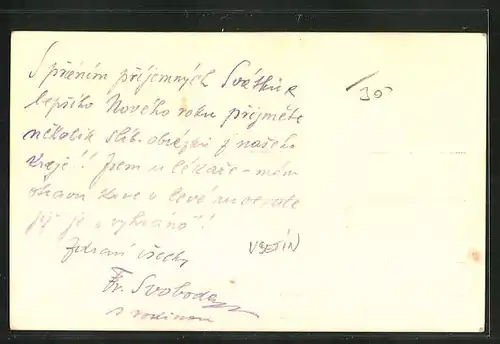 S přáním příjemných Svátků a
lepšího Nového roku přijměte
několik slíb. obrázků z našeho
kraje!! Jsem u lékaře – mám
otravu krve v levé noze ale
již je „vyhráno“!
Zdraví všechny
Fr. Svoboda
s rodinou
VSETÍN
30